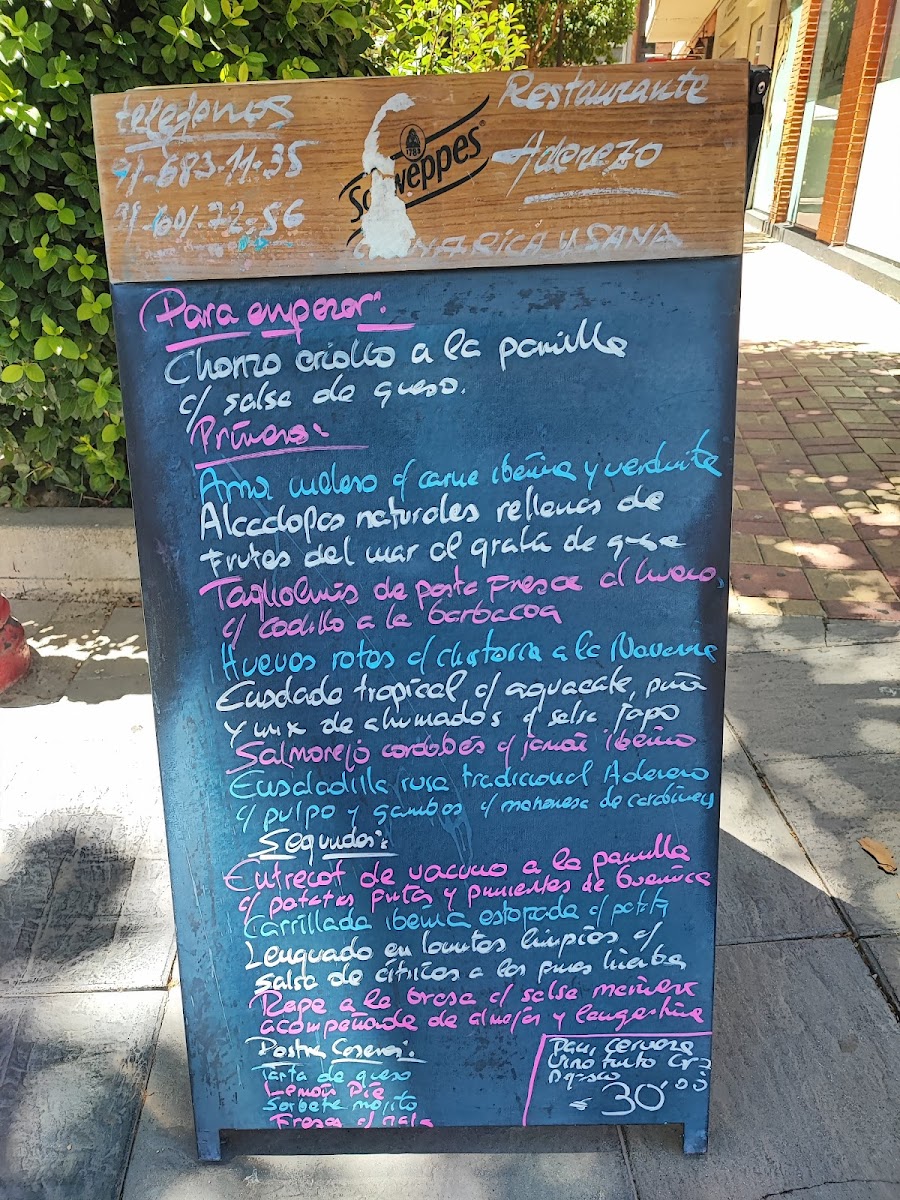 telefonos
91-683-11-35
91-601-72-56
1783
Schweppes
Restaurante
Aderezo
COCINA RICA Y SANA
Para empezar:
Chorizo criollo a la parrilla
c/ salsa de queso.
Primeros:
Arroz meloso c/ carne ibérica y verduritas
Alcachofas naturales rellenas de
Frutos del mar al gratín de queso
Tagliolinis de pasta Fresca al huevo
c/ codillo a la barbacoa
Huevos rotos c/ chistorra a la Navarra
Ensalada tropical c/ aguacate, piña
y mix de ahumados c/ salsa japo
Salmorejo cordobés c/ jamón ibérico
Ensaladilla rusa tradicional Aderezo
c/ pulpo y gambas c/ mahonesa de carabineros
Segundos:
Entrecot de vacuno a la parrilla
c/ patatas fritas y pimientos de Guernica
Carrillada ibérica estofada c/ patata
Lenguado en lomitos limpios c/
salsa de cítricos a las finas hierbas
Rape a la brasa c/ salsa marinera
acompañado de almejas y langostino
Postres Caseros:
Tarta de queso
Lemon Pie
Sorbete mojito
Fresas c/ nata
Pan, cerveza
Vino tinto
30'00